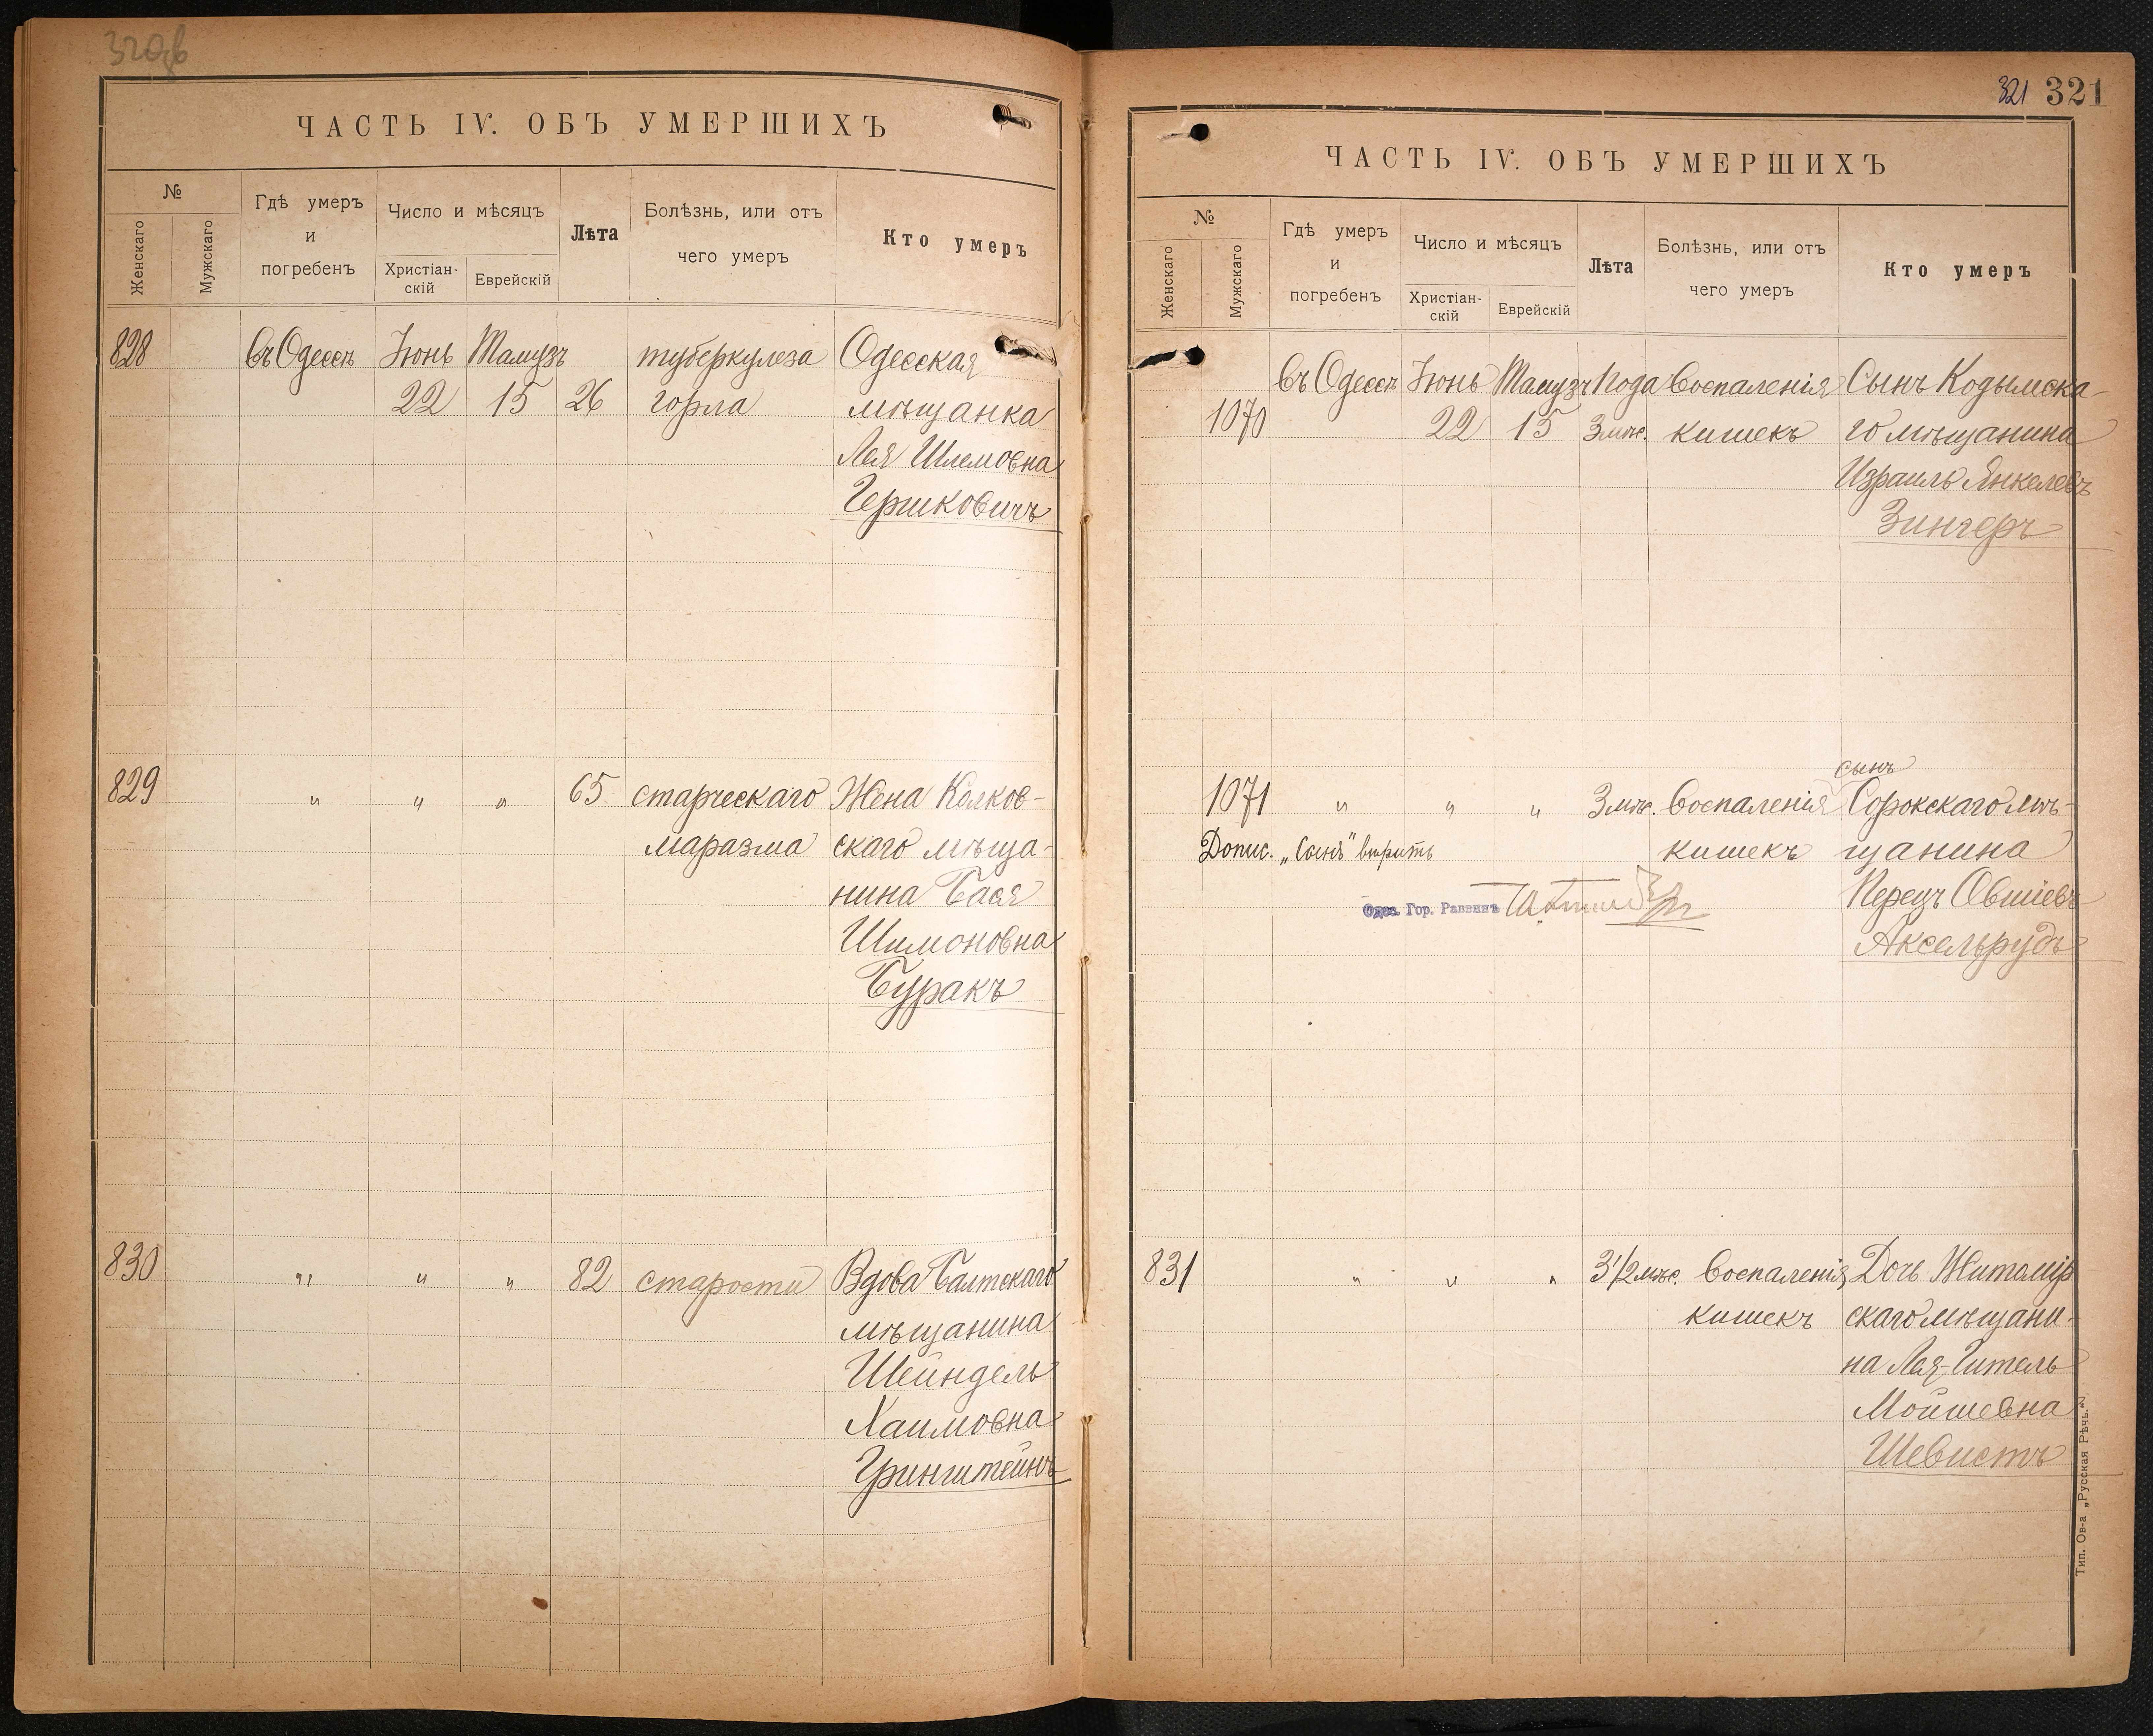 320об
ЧАСТЬ IV. ОБЪ УМЕРШИХЪ
№
Женскаго
Мужскаго
Гдѣ умеръ
и
погребенъ
Число и мѣсяцъ
Христіан-
скій
Еврейскій
Лѣта
Болѣзнь, или отъ
чего умеръ
Кто умеръ
828 въ Одессѣ Іюнь Тамузъ туберкулеза Одесская
22 15 26 горла мѣщанка
Лея Шлемовна
Гершковичъ
829 " " " 65 старческаго Жена Колков-
маразма скаго мѣща-
нина Бася
Шимоновна
Буракъ
830 " " " 82 старости Вдова Балтскаго
мѣщанина
Шейндель
Хаимовна
Гринштейнъ
321 321
ЧАСТЬ IV. ОБЪ УМЕРШИХЪ
№
Женскаго
Мужскаго
Гдѣ умеръ
и
погребенъ
Число и мѣсяцъ
Христіан-
скій
Еврейскій
Лѣта
Болѣзнь, или отъ
чего умеръ
Кто умеръ
въ Одессѣ Іюнь Тамузъ 1 года Воспаленія Сынъ Кодымска-
1070 22 15 3 мѣс. кишекъ го мѣщанина
Израиль Янкелевъ
Зингеръ
сынъ
1071 " " " 3 мѣс. Воспаленія Сорокскаго мѣ-
Допис. „Сынъ" вѣрить кишекъ щанина
Одес. Гор. Раввинъ Перецъ Овшіевъ
Аксельрудъ
831 " " " 3 1/2 мѣс. Воспаленія Дочь Житомір
кишекъ скаго мѣщани-
на Лея-Гитель
Мойшевна
Шевистъ
Тип. Ов-а „Русская Рѣчь."